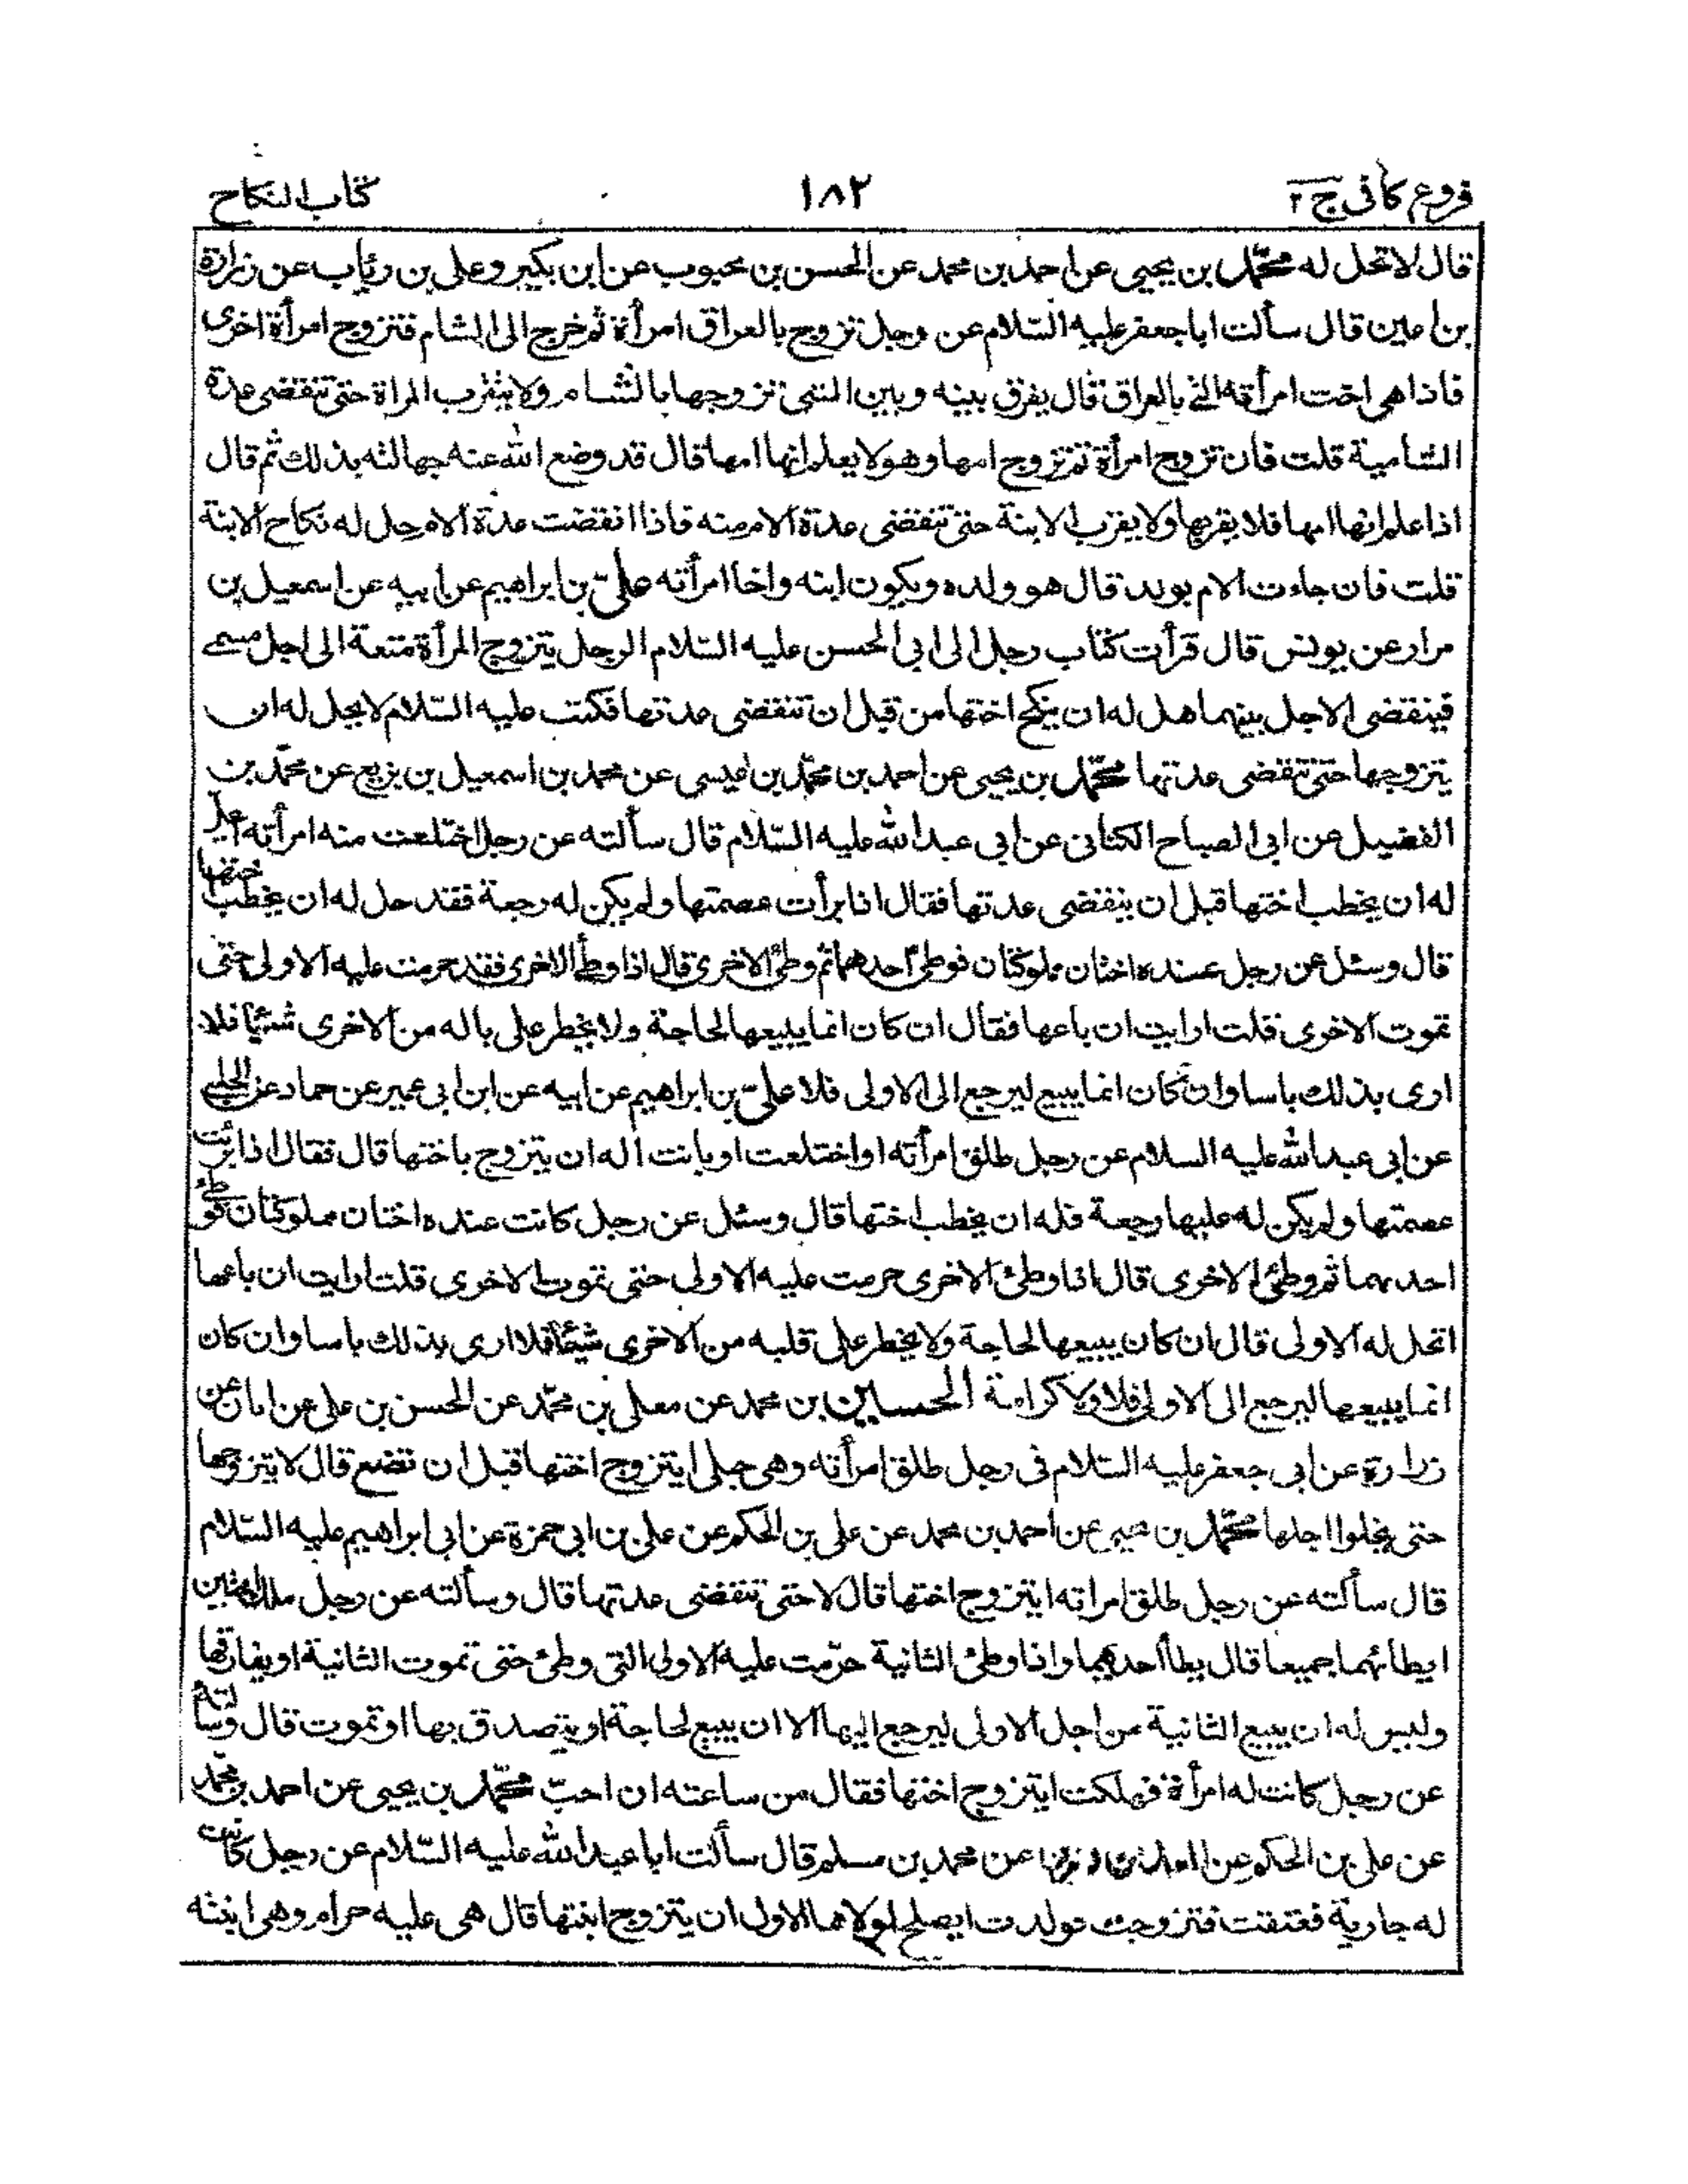 فروع كافى ج ٢
١٨٢
كتاب النكاح
قال لا تحل له محمّد بن يحيى عن احمد بن محمد عن الحسن بن محبوب عن ابن بكير وعلى بن رئاب عن زرارة
بن اعين قال سألت ابا جعفر عليه السّلام عن رجل تزوج بالعراق امرأة ثم خرج الى الشام فتزوج امرأة اخرى
فاذا هى اخت امرأته التى بالعراق قال يفرق بينه وبين التى تزوجها بالشام ولا يقرب المراة حتى تنقضى عدة
الشامية قلت فان تزوج امرأة ثم تزوج امها وهو لا يعلم انها امها قال قد وضع الله عنه جهالته بذلك ثم قال
اذا علم انها امها فلا يقربها ولا يقرب الابنة حتى تنقضى عدة الام منه فاذا انقضت عدة الام حل له نكاح الابنة
قلت فان جاءت الام بولد قال هو ولده ويكون ابنه واخا امرأته علىّ بن ابراهيم عن ابيه عن اسمعيل بن
مرار عن يونس قال قرأت كتاب رجل الى ابى الحسن عليه السّلام الرجل يتزوج المرأة متعة الى اجل مسمى
فينقضى الاجل بينهما هل له ان ينكح اختها من قبل ان تنقضى عدتها فكتب عليه السّلام لا يحل له ان
يتزوجها حتى تنقضى عدتها محمّد بن يحيى عن احمد بن محمّد بن عيسى عن محمد بن اسمعيل بن بزيع عن محمّد بن
الفضيل عن ابى الصباح الكنانى عن ابى عبد الله عليه السّلام قال سألته عن رجل اختلعت منه امرأته أيحل
له ان يخطب اختها قبل ان ينقضى عدتها فقال اذا برأت عصمتها ولم يكن له رجعة فقد حل له ان يخطب اختها
قال وسئل عن رجل عنده اختان مملوكتان فوطئ احدهما ثم وطئ الاخرى قال اذا وطأ الاخرى فقد حرمت عليه الاولى حتى
تموت الاخرى قلت ارايت ان باعها فقال ان كان انما يبيعها لحاجة ولا يخطر على باله من الاخرى شئيا فلا
ارى بذلك باسا وان كان انما يبيع ليرجع الى الاولى فلا علىّ بن ابراهيم عن ابيه عن ابن ابى عمير عن حماد عن الحلبى
عن ابى عبد الله عليه السلام عن رجل طلق امرأته او اختلعت او بانت أله ان يتزوج باختها قال فقال اذا برئت
عصمتها ولم يكن له عليها رجعة فله ان يخطب اختها قال وسئل عن رجل كانت عنده اختان مملوكتان فوطئ
احديهما ثم وطئ الاخرى قال اذا وطئ الاخرى حرمت عليه الاولى حتى تموت الاخرى قلت ارايت ان باعها
اتحل له الاولى قال ان كان يبيعها لحاجة ولا يخطر على قلبه من الاخرى شيئا فلا ارى بذلك باسا وان كان
انما يبيعها ليرجع الى الاولى فلا ولا كرامة الحسين بن محمد عن معلى بن محمّد عن الحسن بن على عن ابان عن
زرارة عن ابى جعفر عليه السّلام فى رجل طلق امرأته وهى حبلى ايتزوج اختها قبل ان تضع قال لا يتزوجها
حتى يخلوا اجلها محمّد بن يحيى عن احمد بن محمد عن على بن الحكم عن على بن ابى حمزة عن ابى ابراهيم عليه السّلام
قال سألته عن رجل طلق امراته ايتزوج اختها قال لا حتى تنقضى عدتها قال وسألته عن رجل ملك اختين
ايطائهما جميعا قال يطأ احديهما واذا وطئ الثانية حرّمت عليه الاولى التى وطئ حتى تموت الثانية او يفارقها
وليس له ان يبيع الثانية من اجل الاولى ليرجع اليها الا ان يبيع لحاجة او يتصدق بها او تموت قال وسألته
عن رجل كانت له امرأة فهلكت ايتزوج اختها فقال من ساعته ان احبّ محمّد بن يحيى عن احمد بن محمّد
عن على بن الحكم عن العلاء بن رزين عن محمد بن مسلم قال سألت ابا عبد الله عليه السّلام عن رجل كانت
له جارية فعتقت فتزوجت فولدت ايصلح لمولاها الاول ان يتزوج ابنتها قال هى عليه حرام وهى ابنته